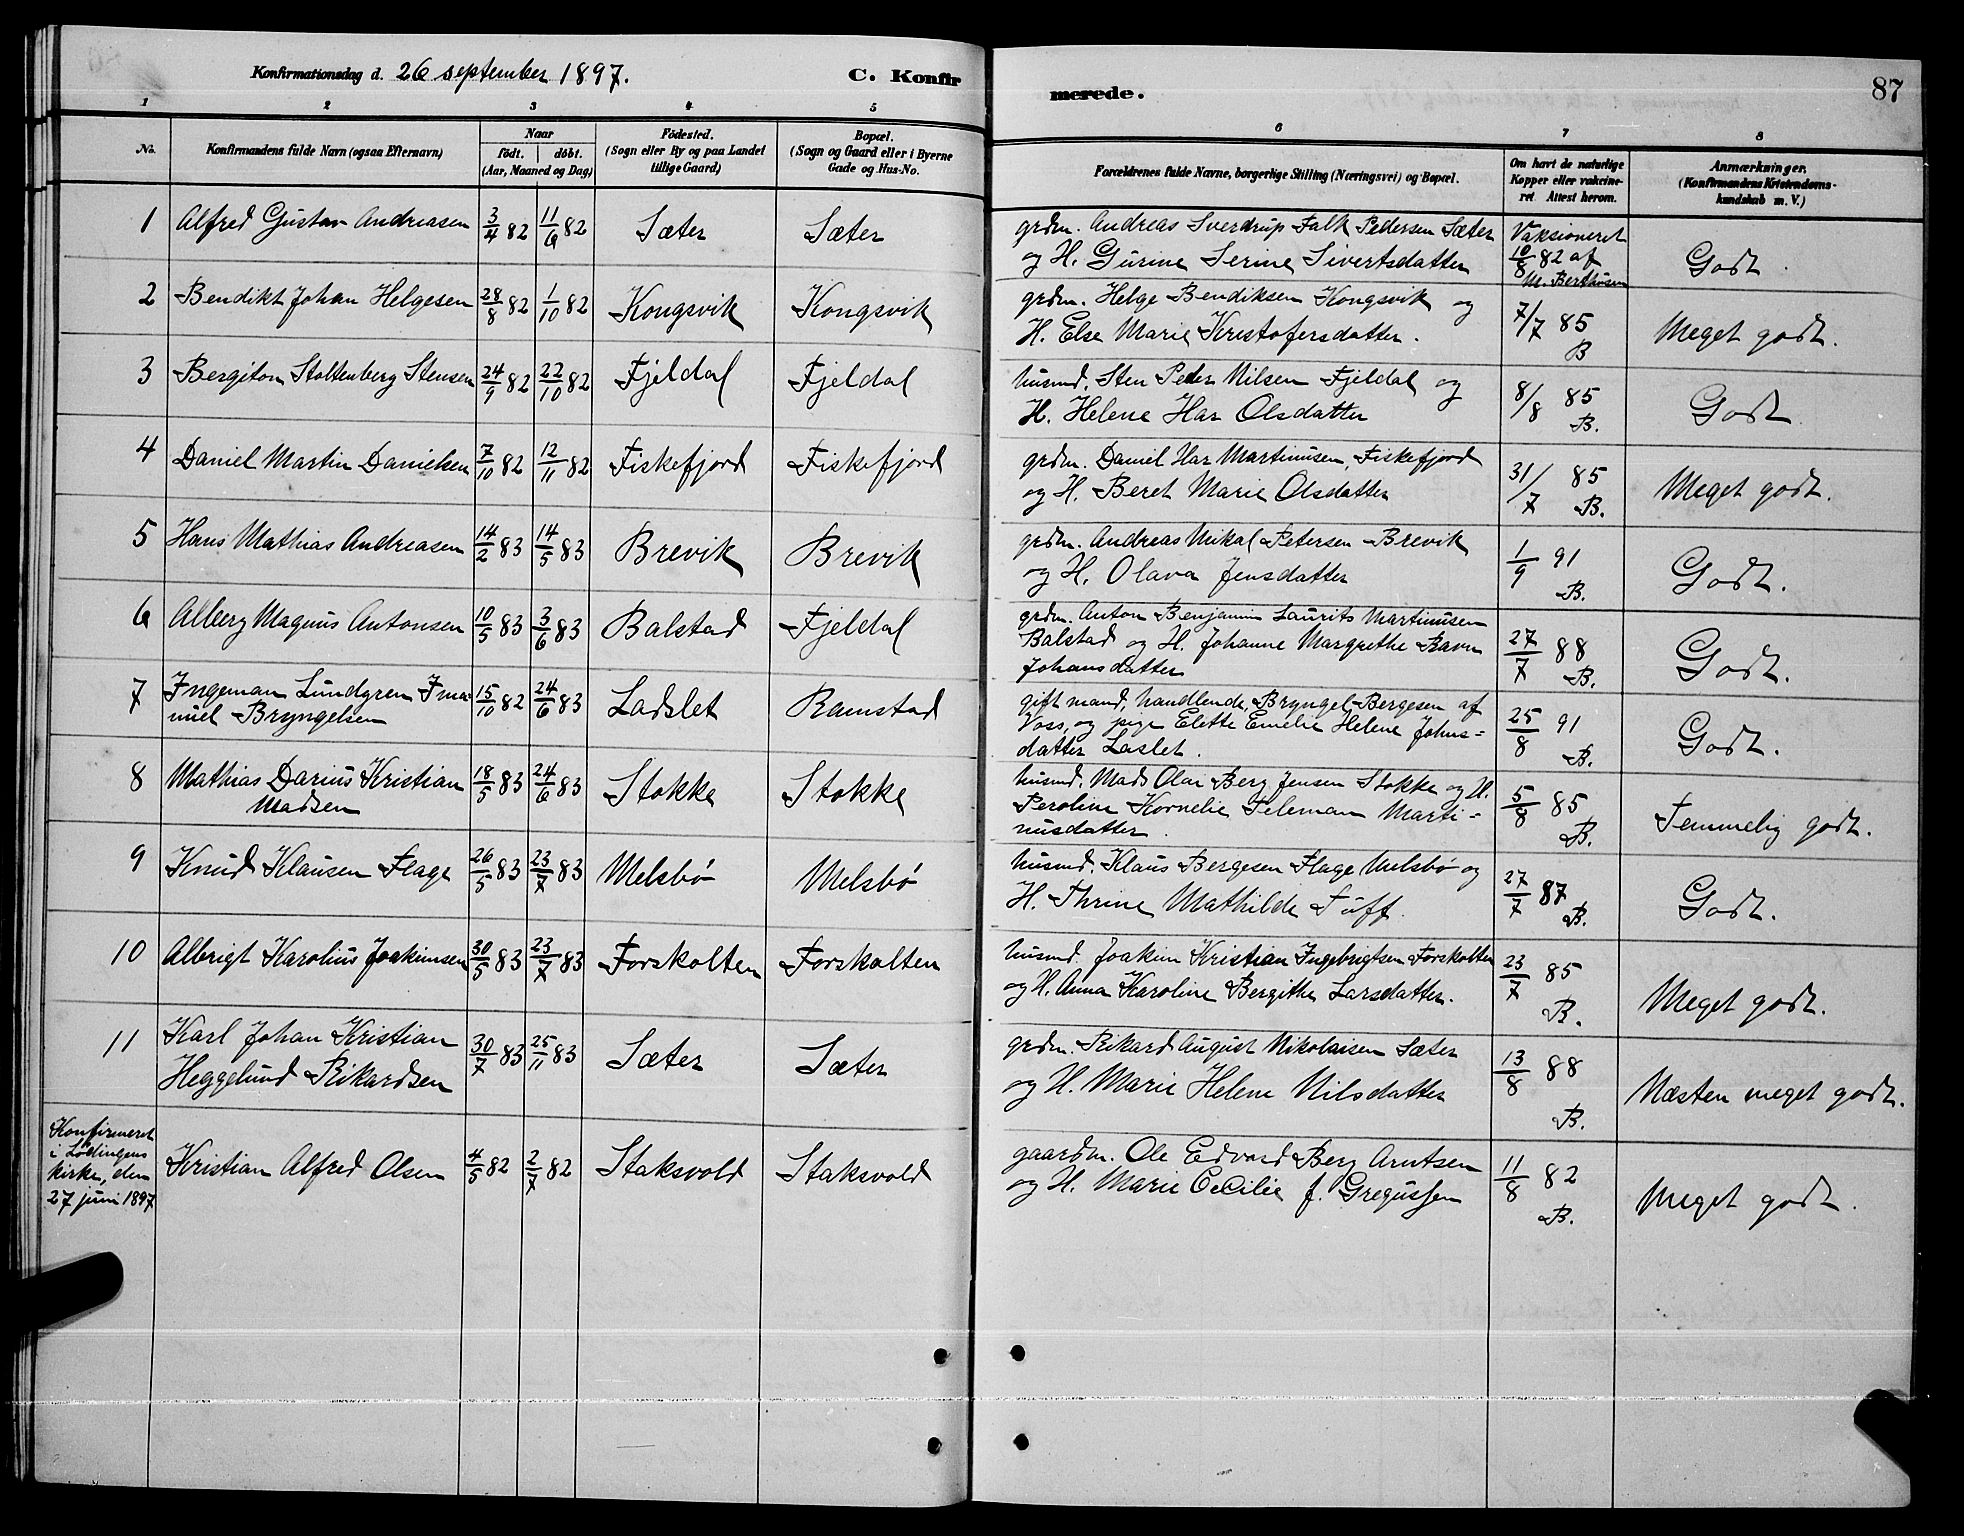 Konfirmationsdag d. 26 september 1897. C. Konfir
merede. 87
1 2 3 4 5 6 7 8
No.
Konfirmandens fulde Navn (ogsaa Efternavn)
Naar
födt. döbt.
(Aar, Maaned og Dag)
Födested.
(Sogn eller By og paa Landet
tillige Gaard)
Bopæl.
(Sogn og Gaard eller i Byerne
Gade og Hus-No.
Forældrenes fulde Navne, borgerlige Stilling (Næringsvei) og Bopæl.
Om havt de naturlige
Kopper eller vakcine-
ret Attest herom.
Anmærkninger.
(Konfirmandens Kristendoms-
kundskab m. V.)
1 Alfred Gustav Andreasen 3/4 82 11/6 82 Sæter Sæter
grdm. Andreas Sverdrup Falk Pedersen Sæter
og H. Gurine Serine Sivertsdatter
Vaksioneret
10/8 82 af
M. Berthusen
Godt.
2 Bendikt Johan Helgesen 28/8 82 1/10 82 Kongsvik Kongsvik
grdm. Helge Bendiksen Kongsvik og
H. Else Marie Kristofersdatter.
7/7 85
B
Meget godt.
3 Bergiton Stoltenberg Stensen 24/9 82 22/10 82 Fjeldal Fjeldal
husmd. Sten Peder Nilsen Fjeldal og
H. Helene Har Olsdatter
8/8 85
B.
Godt.
4 Daniel Martin Danielsen 7/10 82 12/11 82 Fiskefjord Fiskefjord
grdm. Daniel Har Martinusen, Fiskefjord
og H. Beret Marie Olsdatter
31/7 85
B.
Meget godt.
5 Hans Mathias Andreasen 14/2 83 14/5 83 Brevik Brevik
grdm. Andreas Mikal Petersen Brevik
og H. Olava Jensdatter
1/9 91
B.
Godt.
6 Alberg Magnus Antonsen 10/5 83 3/6 83 Balstad Fjeldal
grdm. Anton Benjamin Laurits Martinusen
Balstad og H. Johanne Margrethe Ravn
Johansdatter
27/7 88
B.
Godt.
7 Ingeman Lundgren Ima-
nuel Bryngelsen 15/10 82 24/6 83 Ladslet Ramstad
gift mand, handlende, Bryngel Bergesen af
Voss, og pige Elette Emelie Helene Johns=
datter Laslet.
25/8 91
B.
Godt.
8 Mathias Darius Kristian
Madsen 18/5 83 24/6 83 Stokke Stokke
husmd. Mads Olai Berg Jensen Stokke og H.
Peroline Kornelie Teleman Marti=
nusdatter.
5/8 85
B.
Temmelig godt.
9 Knud Klausen Flage 26/5 83 23/7 83 Melsbö Melsbö
husmd. Klaus Bergesen Flage Melsbö og
H. Thrine Mathilde Tuff.
27/7 87
B.
Godt.
10 Albrigt Karolius Joakimsen 30/5 83 23/7 83 Forskolten Forskolten
husmd. Joakim Kristian Ingebrigtsen Forskolten
og H. Anna Karoline Bergithe Larsdatter.
23/7 85
B.
Meget godt.
11 Karl Johan Kristian
Heggelund Rikardsen 30/7 83 25/11 83 Sæter Sæter
grdm. Rikard August Nikolaisen Sæter
og H. Marie Helene Nilsdatter
13/8 88
B.
Næsten meget godt.
Konfirmeret
i Lödingens
kirke, den
27 juni 1897
Kristian Alfred Olsen 4/5 82 2/7 82 Staksvold Staksvold
gaardm. Ole Edvard Berg Arntsen
og H. Marie Cecilie f. Gregussen
11/8 82
B.
Meget godt.